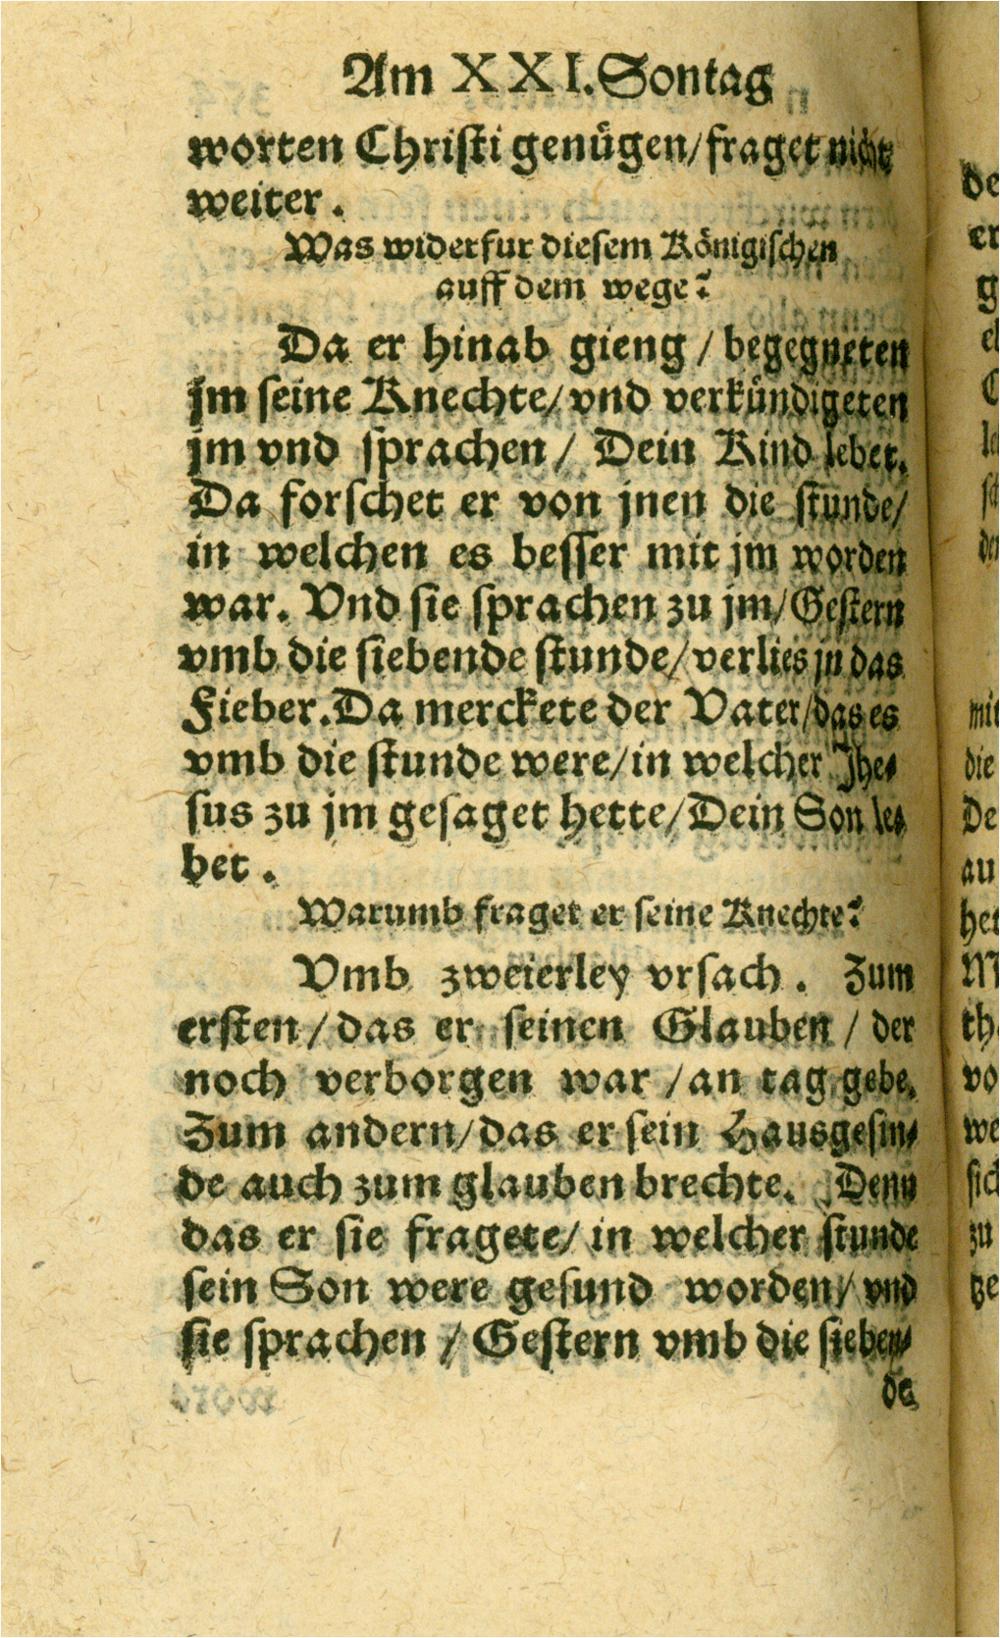 Am XXI. Sontag
worten Christi genügen/ fraget nicht
weiter.
Was widerfur diesem Königischen
auff dem wege?
Da er hinab gieng / begegneten
jm seine Knechte/ vnd verkündigeten
jm vnd sprachen / Dein Kind lebet.
Da forschet er von jnen die stunde/
in welchen es besser mit jm worden
war. Vnd sie sprachen zu jm/ Gestern
vmb die siebende stunde/ verlies jn das
Fieber. Da merckete der Vater/ das es
vmb die stunde were/ in welcher Jhe-
sus zu jm gesaget hette/ Dein Son le-
bet.
Warumb fraget er seine Knechte?
Vmb zweierley vrsach. Zum
ersten / das er seinen Glauben / der
noch verborgen war / an tag gebe.
Zum andern/ das er sein Hausgesin-
de auch zum glauben brechte. Denn
das er sie fragete/ in welcher stunde
sein Son were gesund worden/ vnd
sie sprachen / Gestern vmb die sieben-
de
de
er
g
mit
die
De
au
het
M
th
vo
we
sich
zu
tze